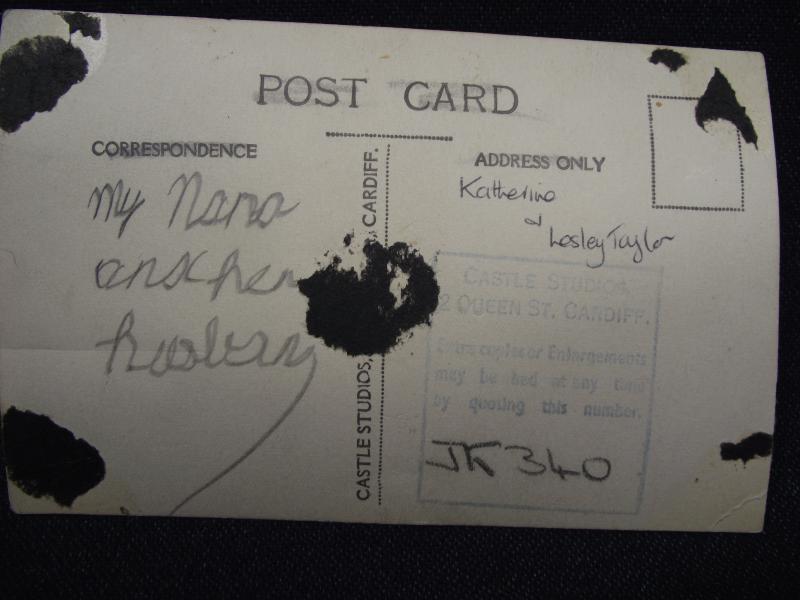 POST CARD
CORRESPONDENCE
My Nana
and her
CASTLE STUDIOS, CARDIFF.
ADDRESS ONLY
Katherine
& Lesley Taylor
CASTLE STUDIOS,
2 QUEEN ST. CARDIFF.
Extra copies or Enlargements
may be had at any time
by quoting this number.
JK 340